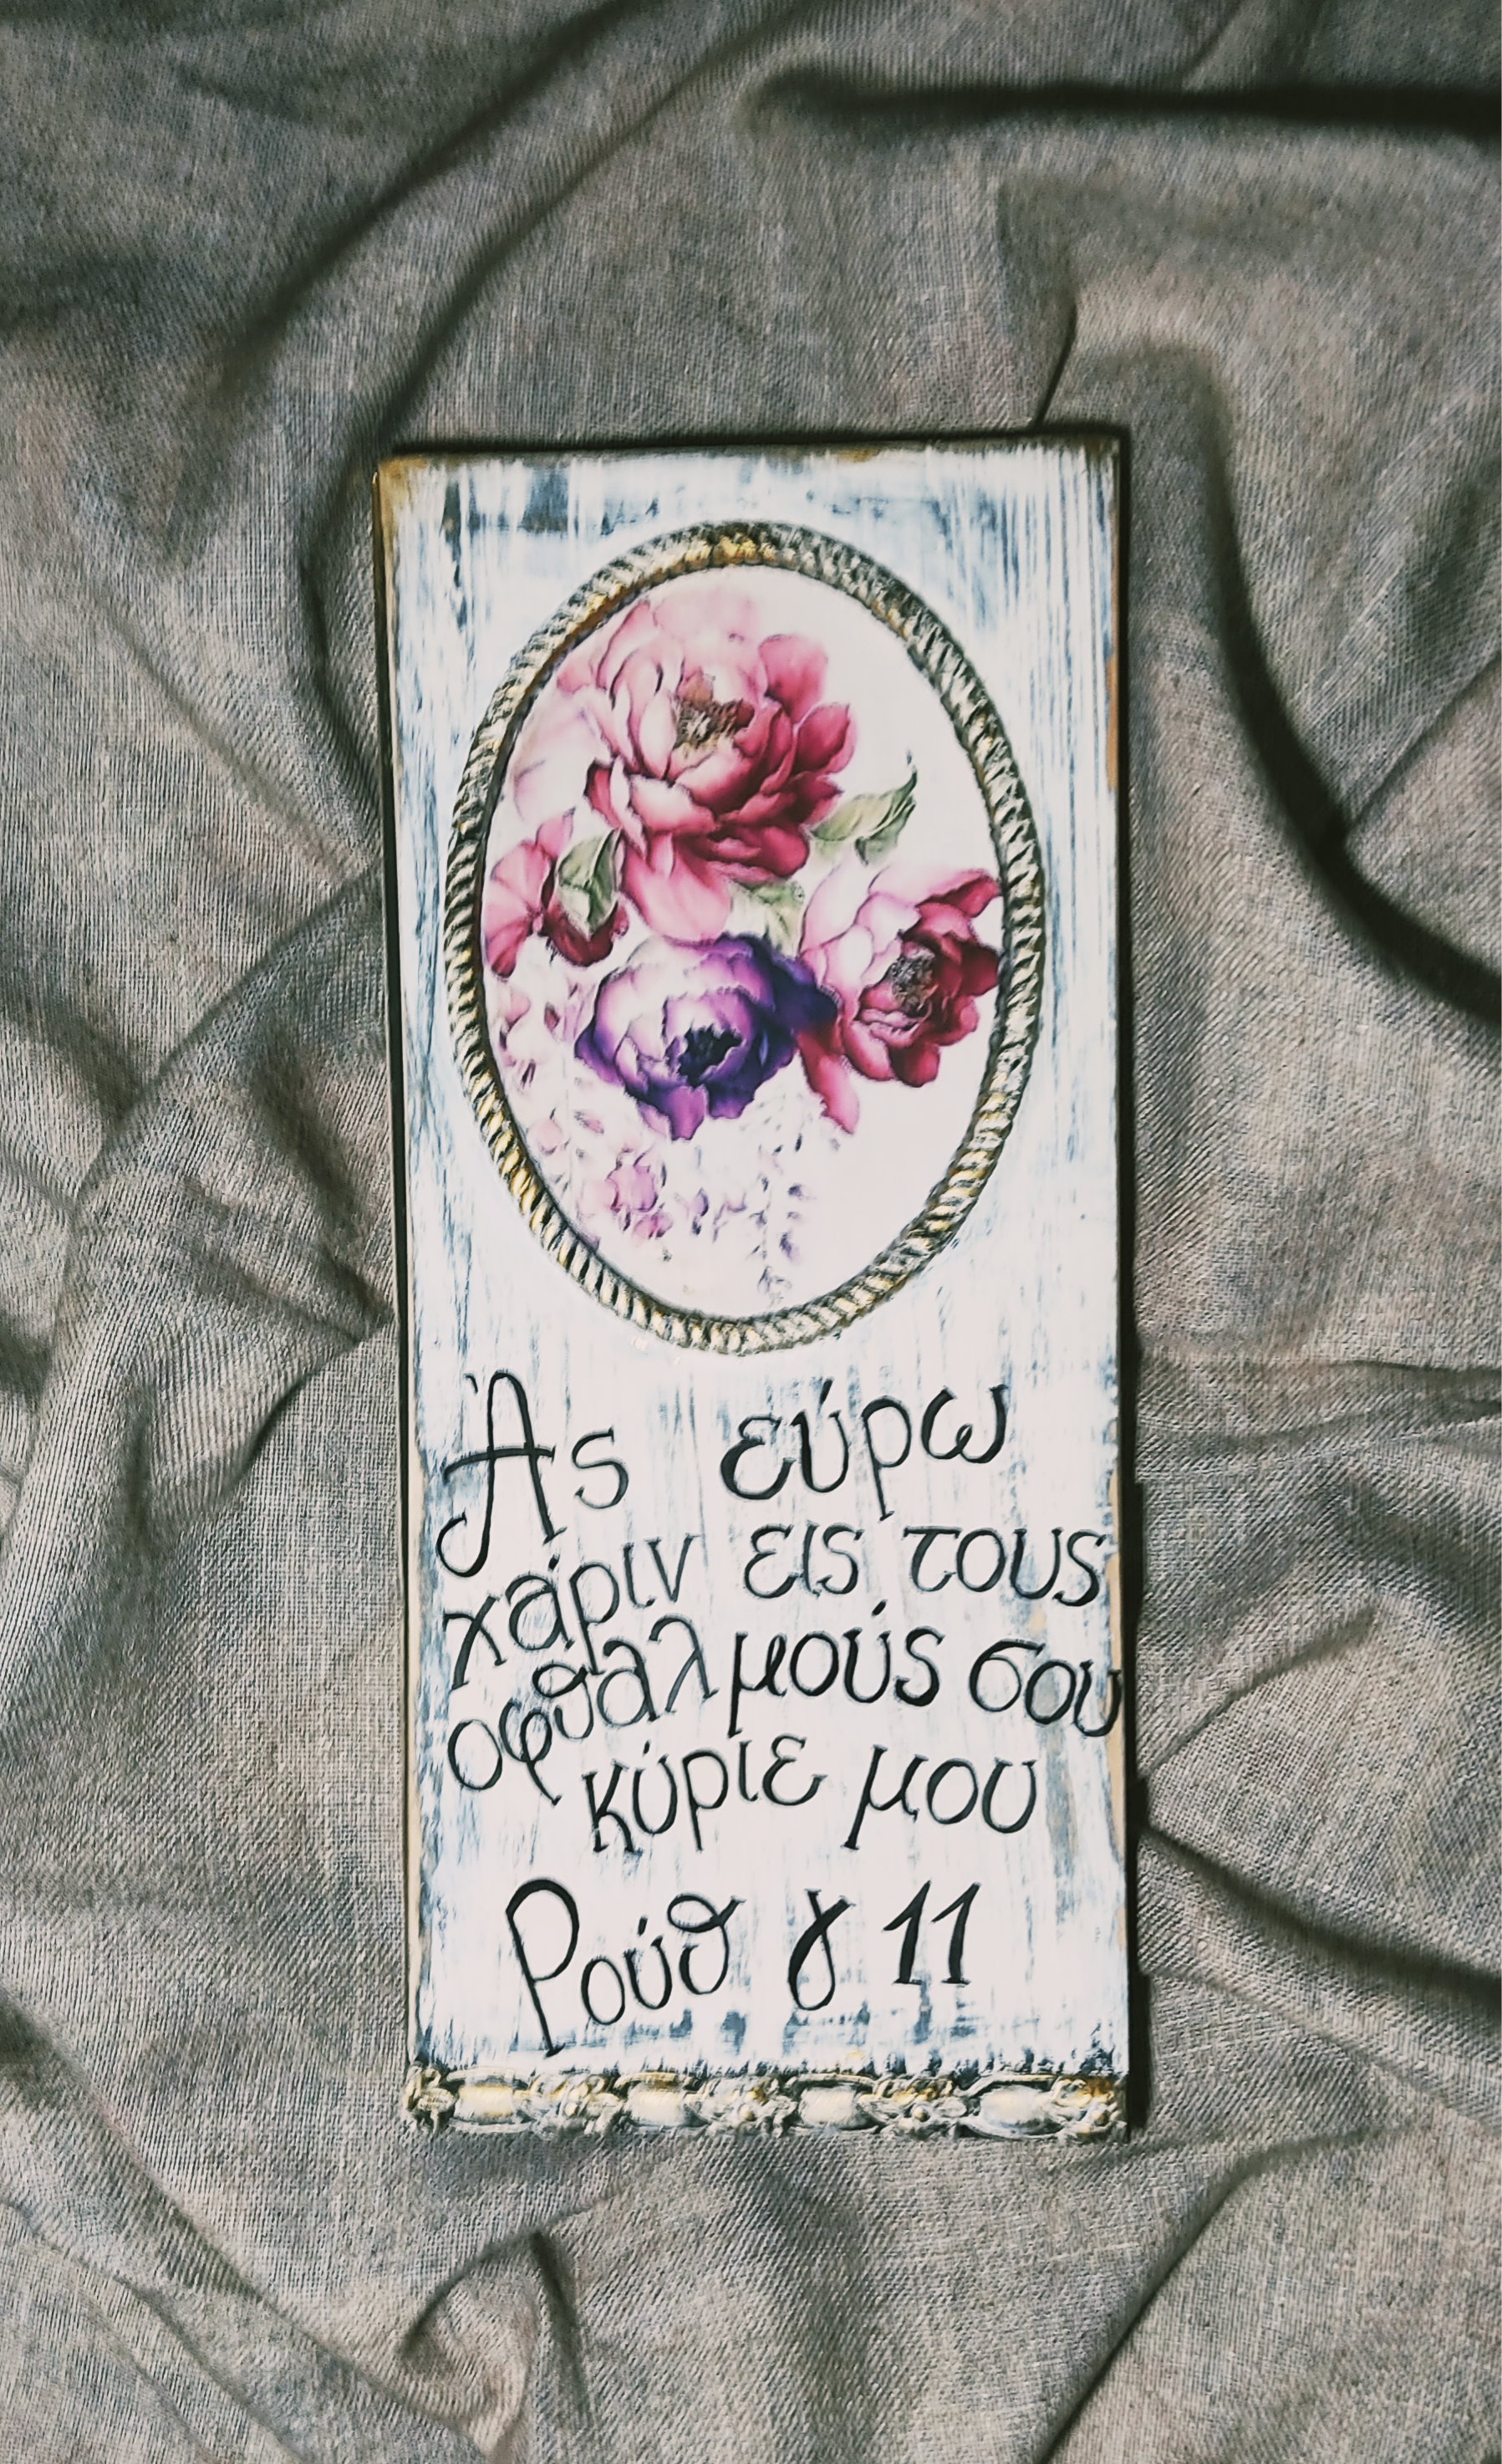 Ἁς εύρω
χάριν εις τους
οφθαλμούς σου
κύριε μου
Ρούθ γ 11